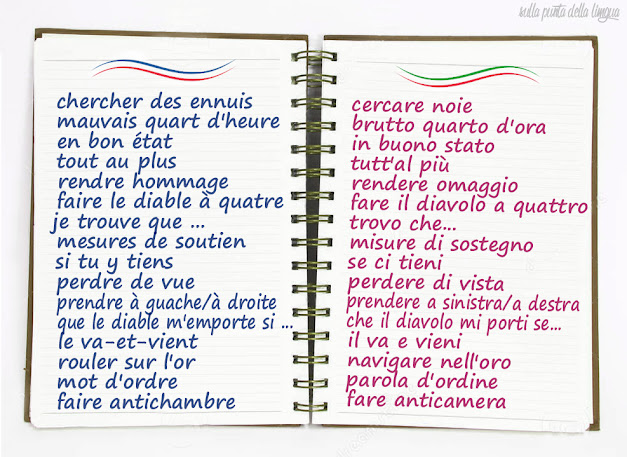 sulla punta della lingua
chercher des ennuis
mauvais quart d'heure
en bon état
tout au plus
rendre hommage
faire le diable à quatre
je trouve que ...
mesures de soutien
si tu y tiens
perdre de vue
prendre à guache/à droite
que le diable m'emporte si ...
le va-et-vient
rouler sur l'or
mot d'ordre
faire antichambre
cercare noie
brutto quarto d'ora
in buono stato
tutt'al più
rendere omaggio
fare il diavolo a quattro
trovo che...
misure di sostegno
se ci tieni
perdere di vista
prendere a sinistra/a destra
che il diavolo mi porti se...
il va e vieni
navigare nell'oro
parola d'ordine
fare anticamera